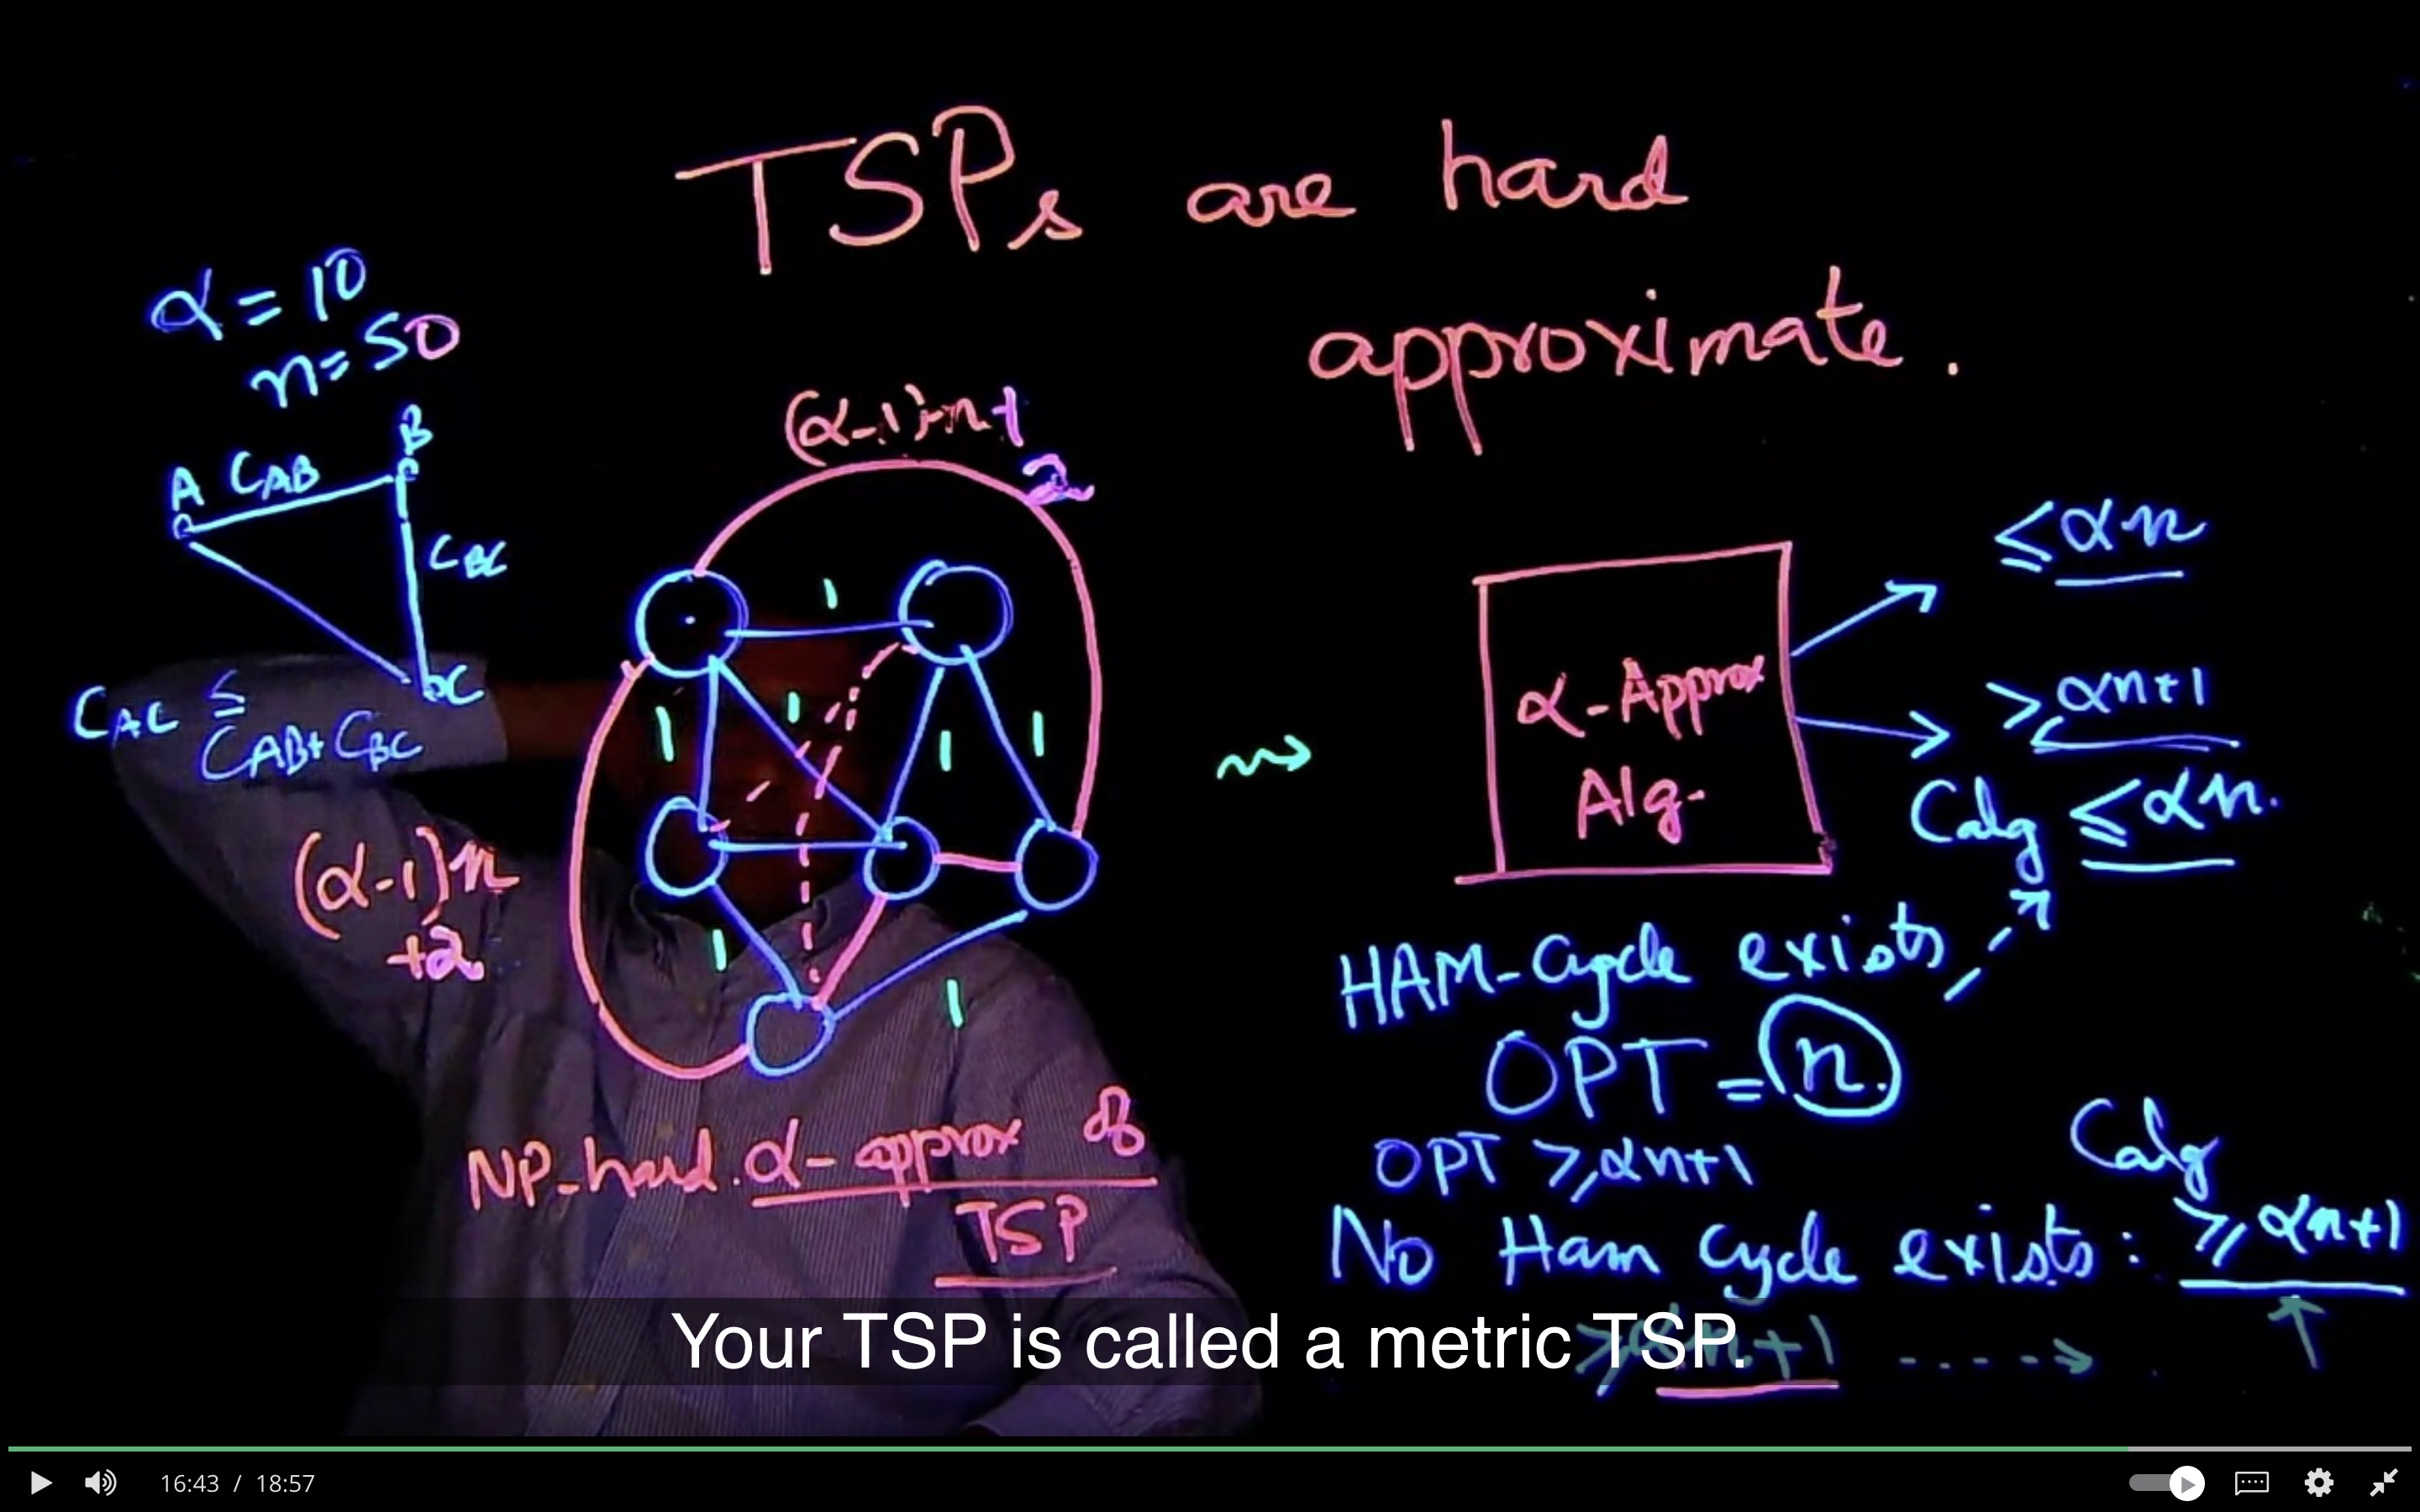 TSPs are hard
approximate.
α = 10
n = 50
A
C_AB
B
C_BC
C
C_AC ≤
C_AB + C_BC
(α-1)n+
2
1
1
1
1
1
1
1
(α-1)n
+2
NP-hard. α-approx of
TSP
α-Approx
Alg.
≤ αn
≥ αn+1
Calg ≤ αn.
HAM-Cycle exists
OPT = n.
OPT ≥ αn+1
Calg
No Ham Cycle exists: ≥ αn+1
≥ αn+1
Your TSP is called a metric TSP.
16:43 / 18:57